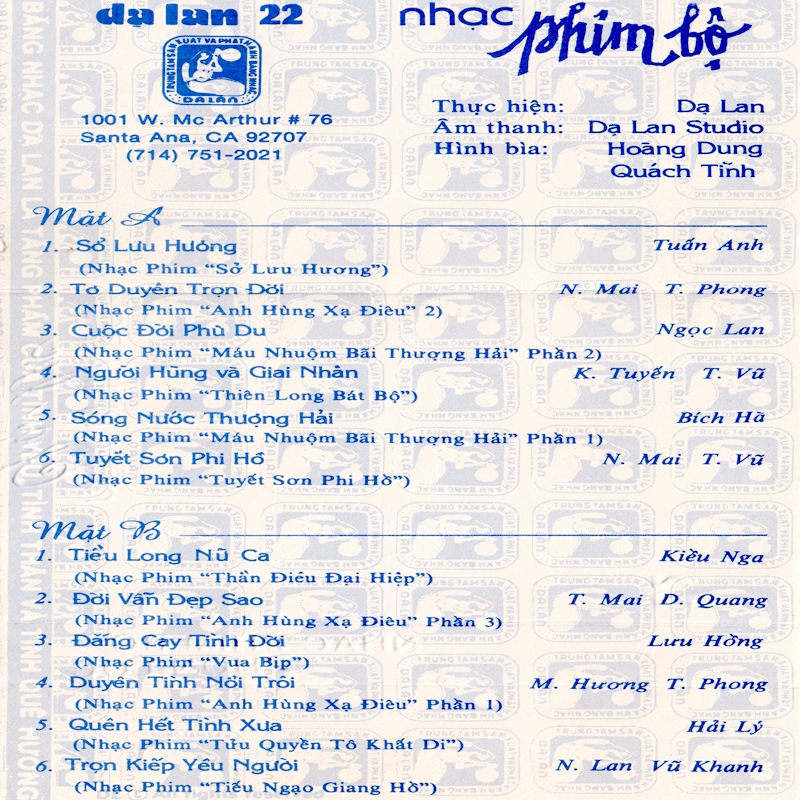 dạ lan 22
nhạc phim bộ
TRUNG TÂM SẢN XUẤT VÀ PHÁT HÀNH BĂNG NHẠC
DẠ LAN
1001 W. Mc Arthur # 76
Santa Ana, CA 92707
(714) 751-2021
Thực hiện: Dạ Lan
Âm thanh: Dạ Lan Studio
Hình bìa: Hoàng Dung
Quách Tĩnh
Mặt A
1. Sở Lưu Hương Tuấn Anh
(Nhạc Phim “Sở Lưu Hương”)
2. Tơ Duyên Trọn Đời N. Mai T. Phong
(Nhạc Phim “Anh Hùng Xạ Điêu” 2)
3. Cuộc Đời Phù Du Ngọc Lan
(Nhạc Phim “Máu Nhuộm Bãi Thượng Hải” Phần 2)
4. Người Hùng và Giai Nhân K. Tuyến T. Vũ
(Nhạc Phim “Thiên Long Bát Bộ”)
5. Sóng Nước Thượng Hải Bích Hà
(Nhạc Phim “Máu Nhuộm Bãi Thượng Hải” Phần 1)
6. Tuyết Sơn Phi Hồ N. Mai T. Vũ
(Nhạc Phim “Tuyết Sơn Phi Hồ”)
Mặt B
1. Tiểu Long Nữ Ca Kiều Nga
(Nhạc Phim “Thần Điêu Đại Hiệp”)
2. Đời Vẫn Đẹp Sao T. Mai D. Quang
(Nhạc Phim “Anh Hùng Xạ Điêu” Phần 3)
3. Đắng Cay Tình Đời Lưu Hồng
(Nhạc Phim “Vua Bịp”)
4. Duyên Tình Nổi Trôi M. Hương T. Phong
(Nhạc Phim “Anh Hùng Xạ Điêu” Phần 1)
5. Quên Hết Tình Xưa Hải Lý
(Nhạc Phim “Tửu Quyền Tô Khất Di”)
6. Trọn Kiếp Yêu Người N. Lan Vũ Khanh
(Nhạc Phim “Tiếu Ngạo Giang Hồ”)
All rights reserved